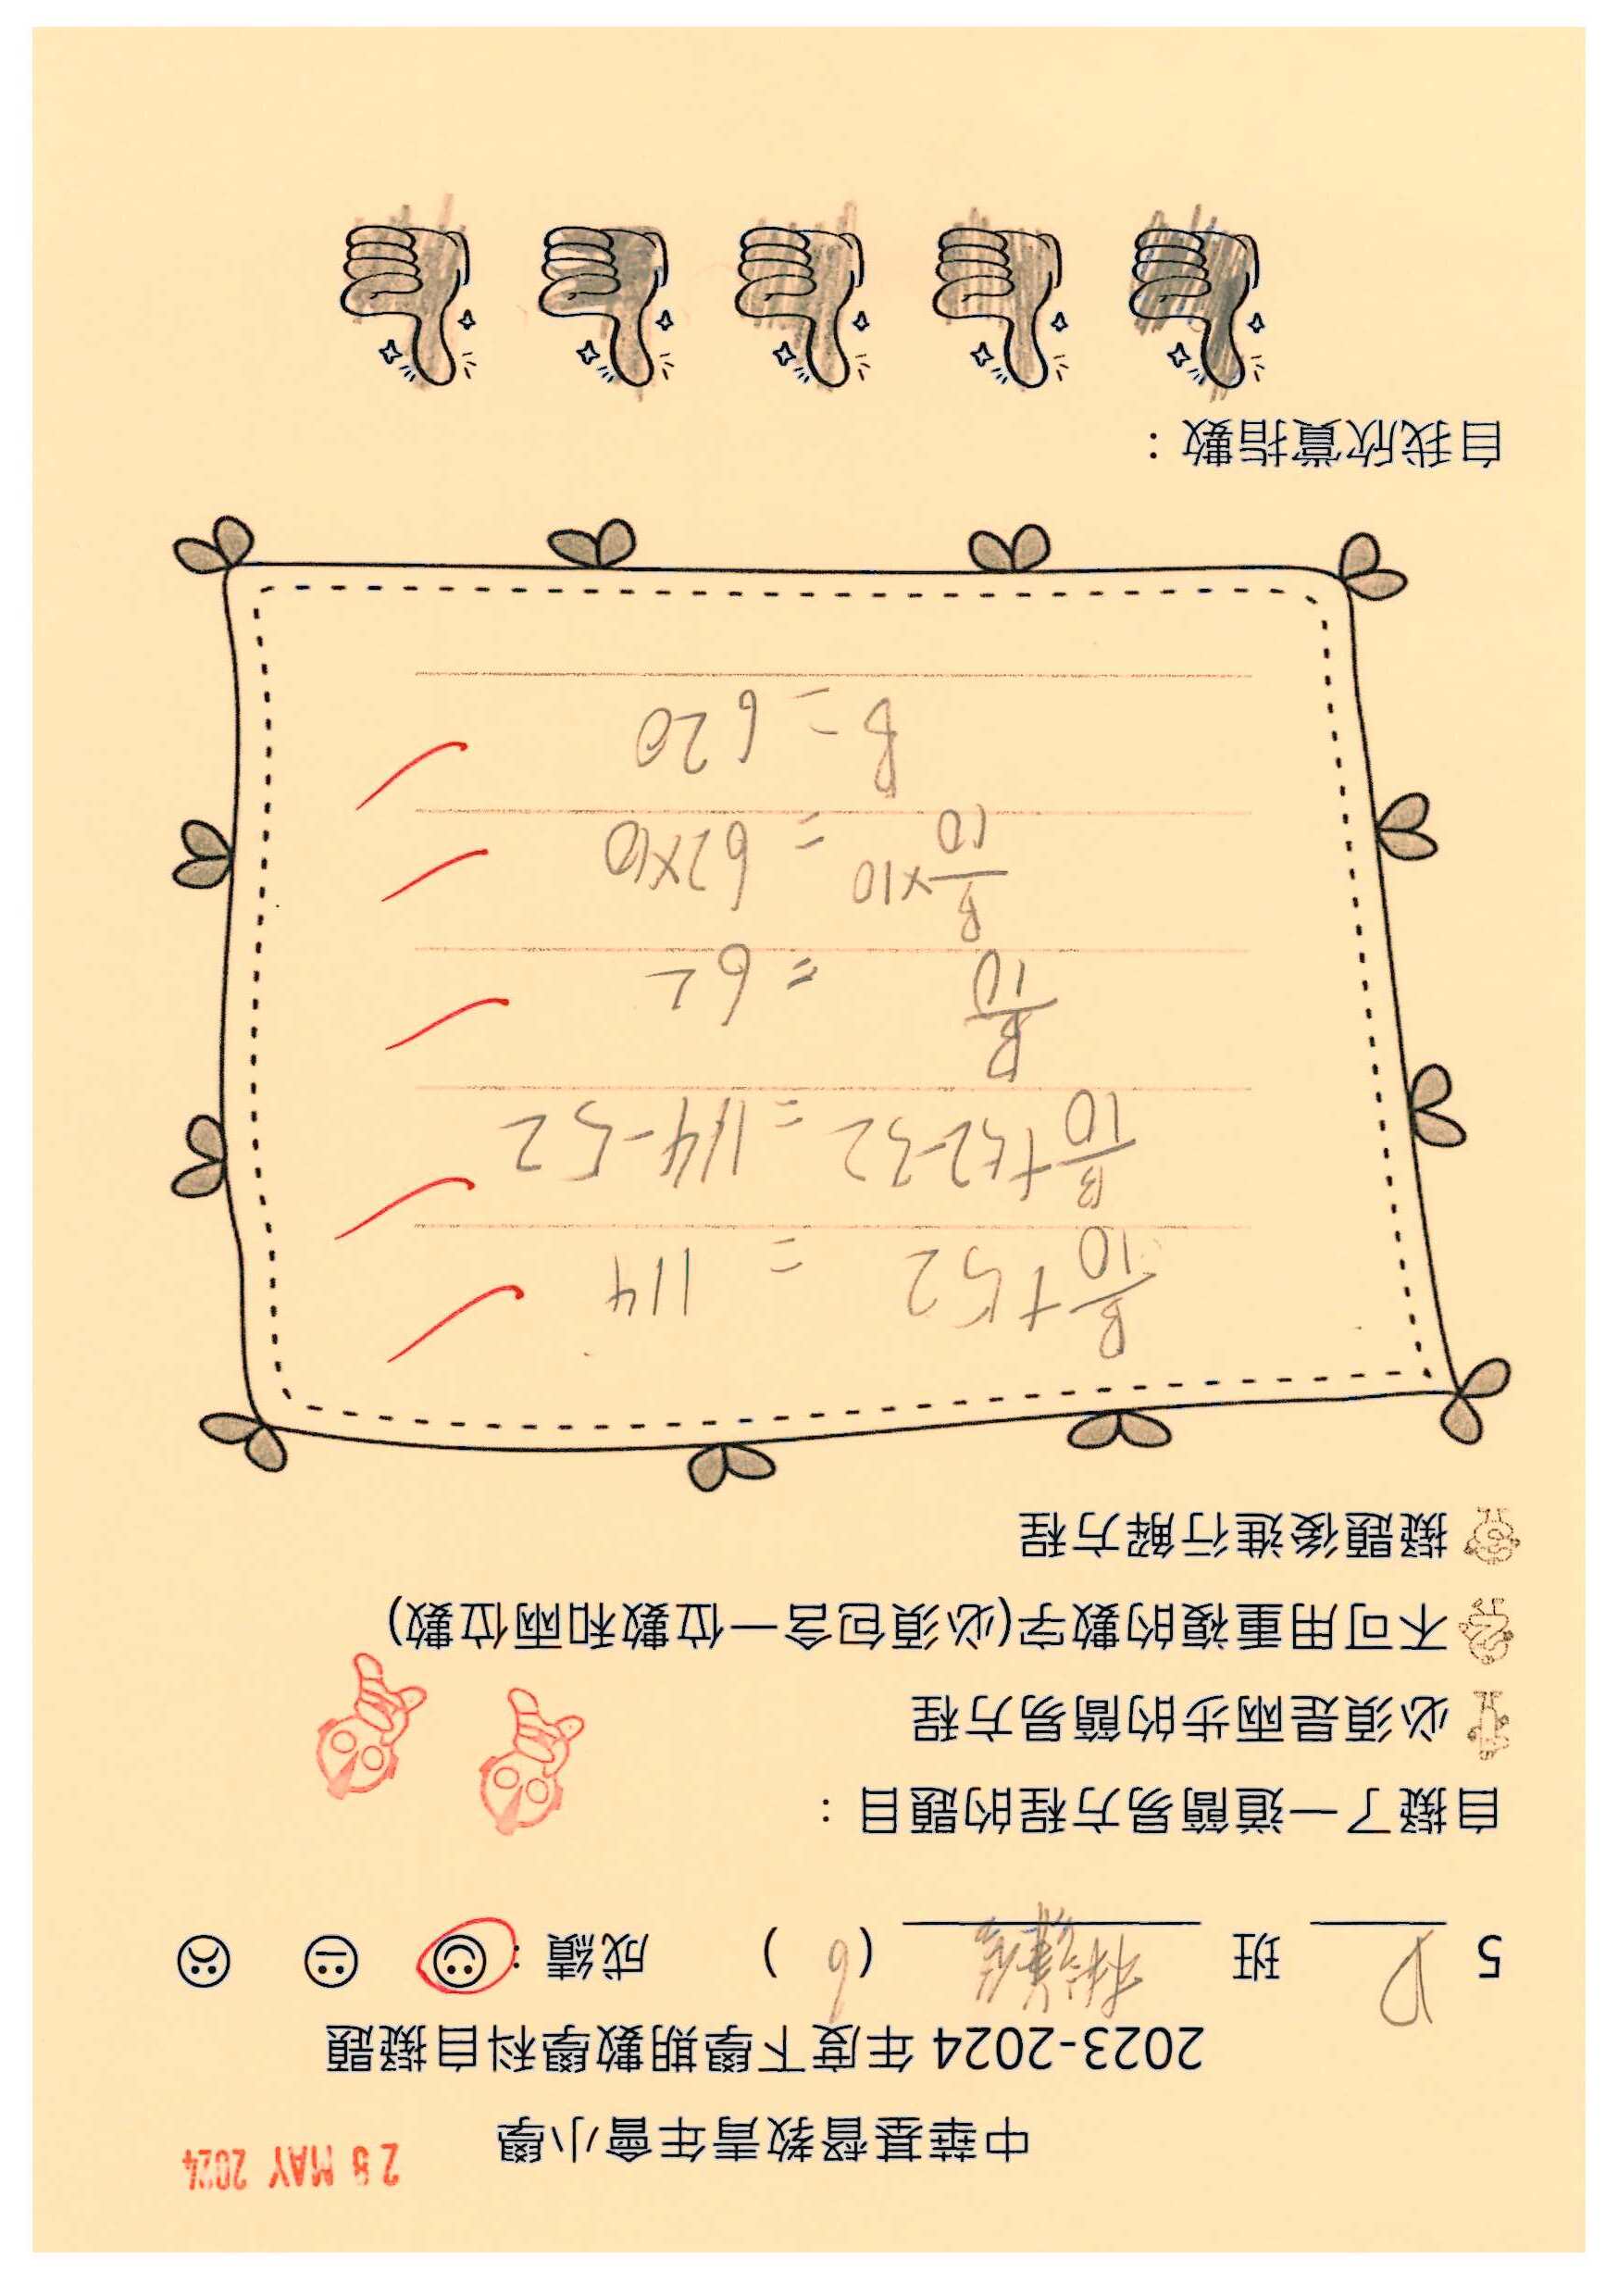 中華基督教青年會小學
28 MAY 2024
2023-2024 年度下學期數學科自擬題
5 D 班 (6) 成績：
自擬了一道簡易方程的題目：
必須是兩步的簡易方程
不可用重複的數字(必須包含一位數和兩位數)
擬題後進行解方程
B/10 + 52 = 114
B/10 + 52 - 52 = 114 - 52
B/10 = 62
B/10 × 10 = 62 × 10
B = 620
自我欣賞指數：